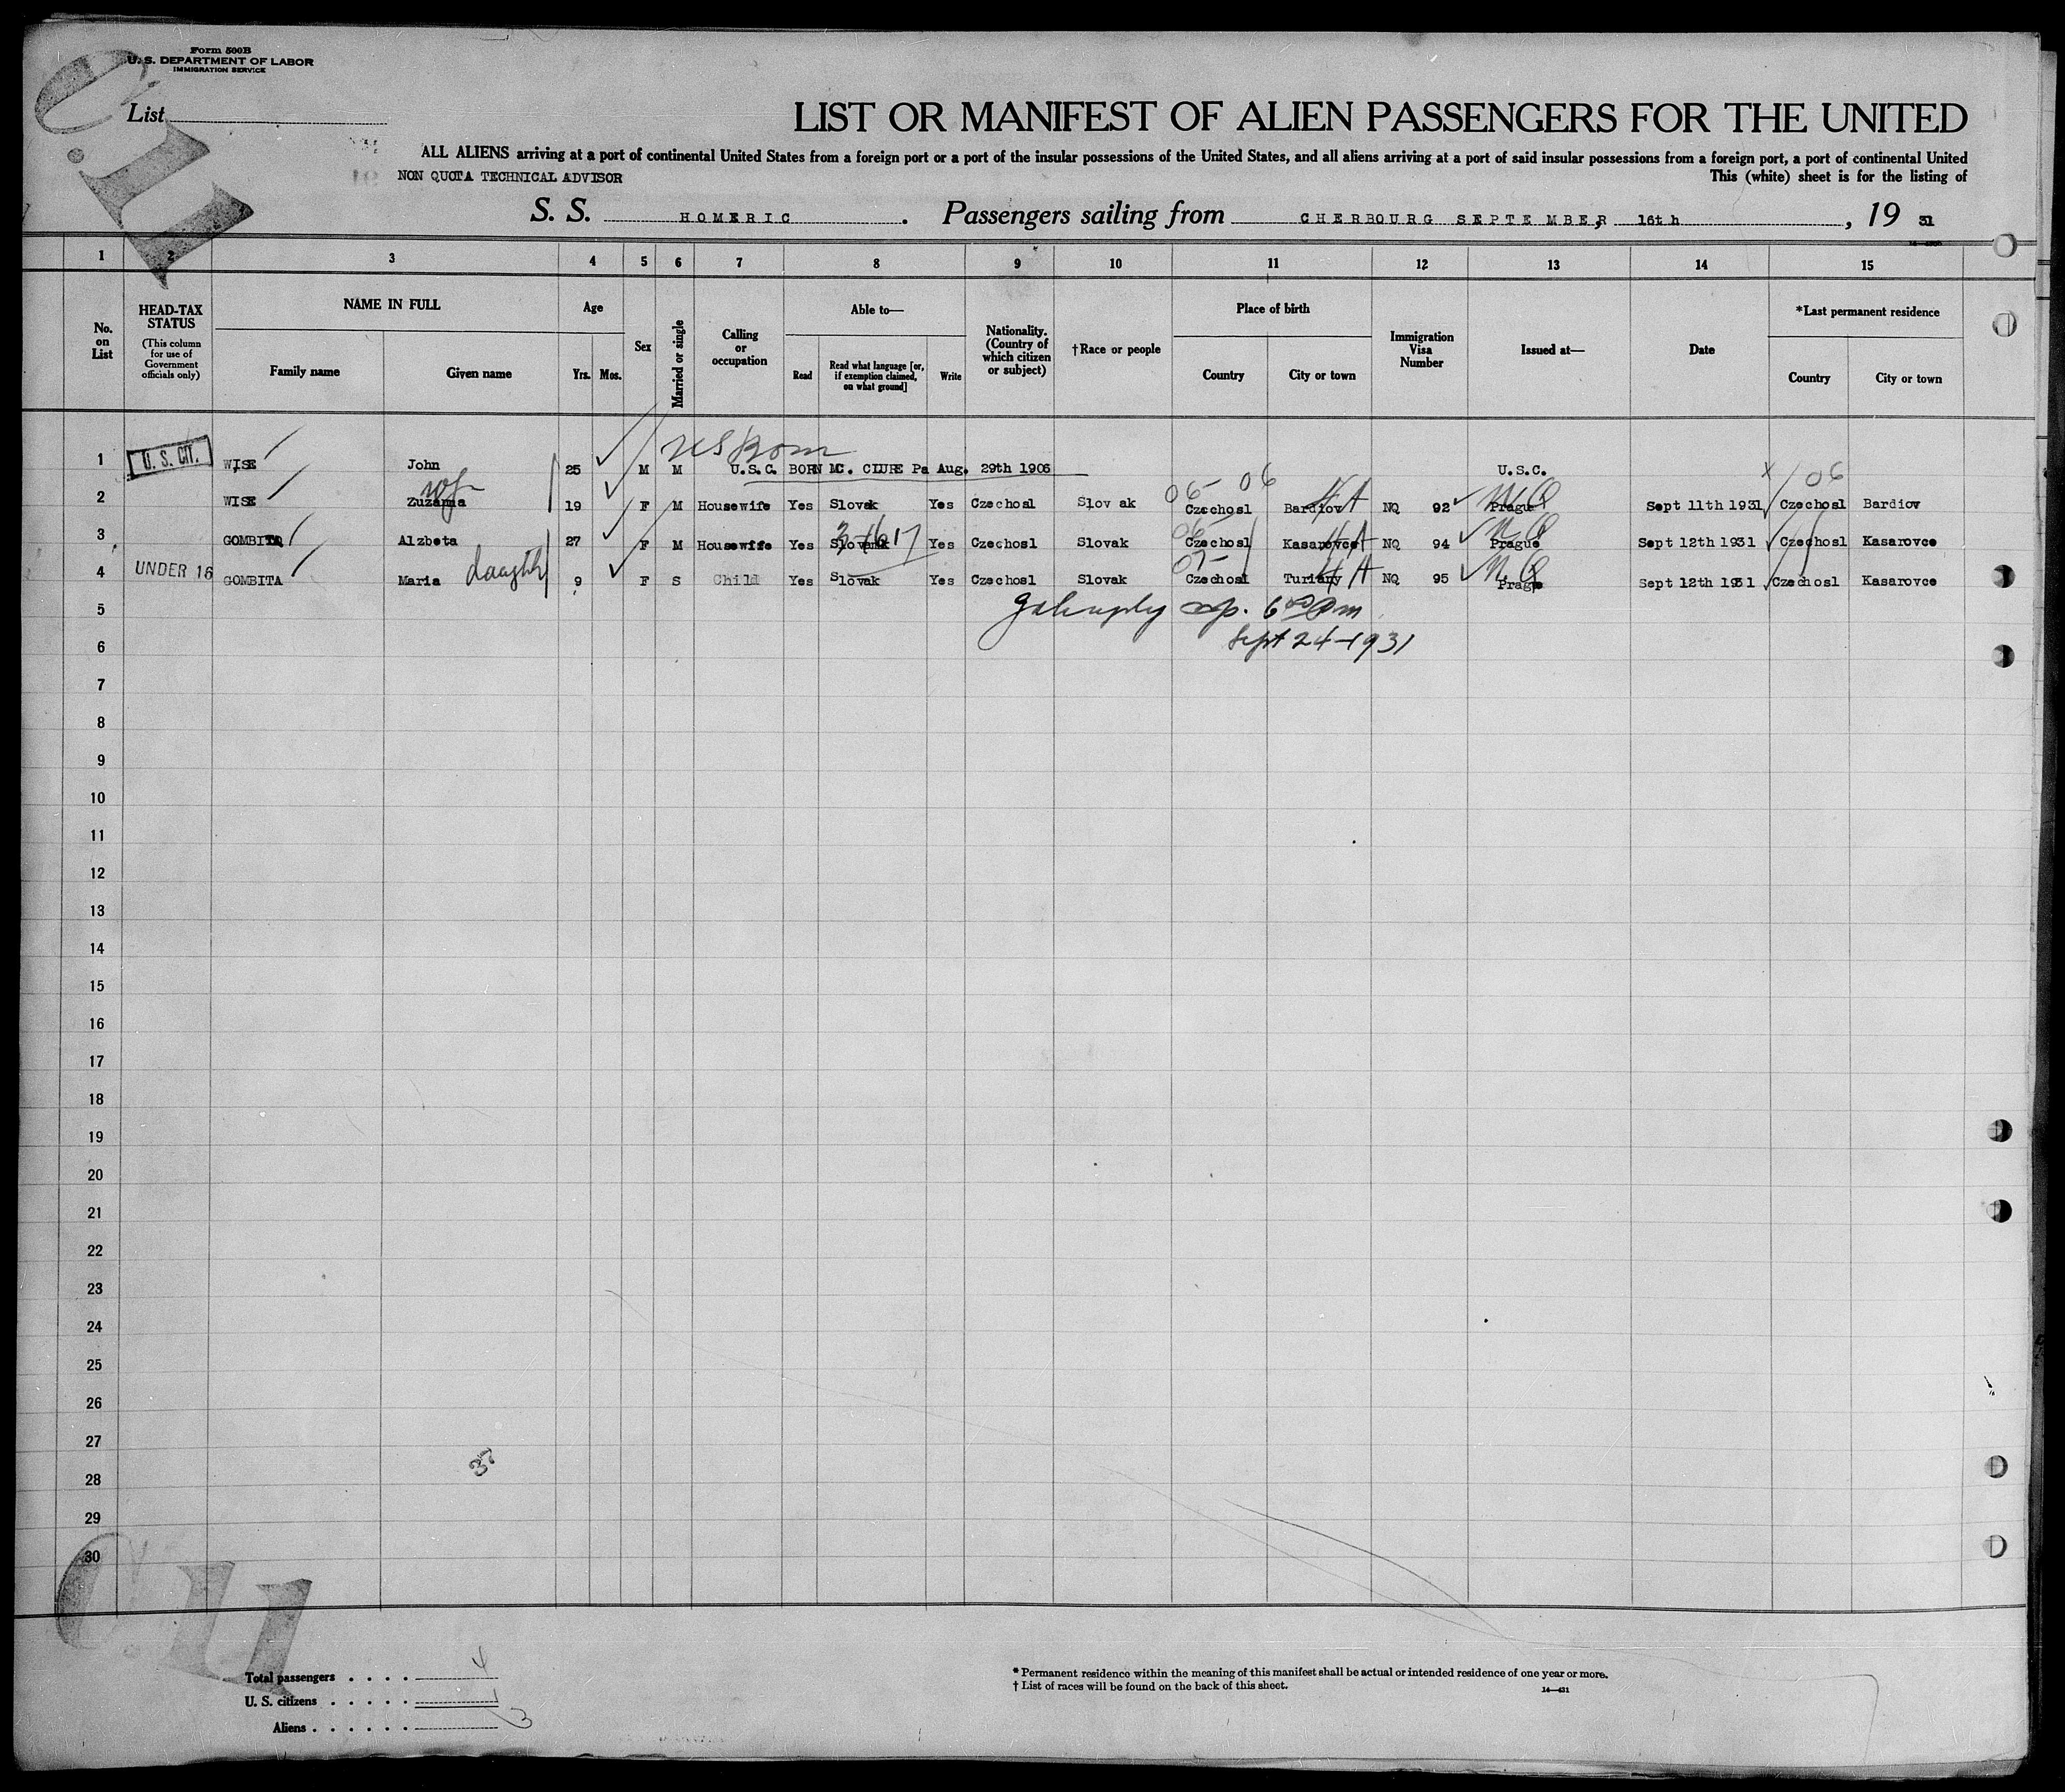 Form 500B
U. S. DEPARTMENT OF LABOR
IMMIGRATION SERVICE
List
LIST OR MANIFEST OF ALIEN PASSENGERS FOR THE UNITED
ALL ALIENS arriving at a port of continental United States from a foreign port or a port of the insular possessions of the United States, and all aliens arriving at a port of said insular possessions from a foreign port, a port of continental United
NON QUOTA TECHNICAL ADVISOR This (white) sheet is for the listing of
S. S. HOMERIC . Passengers sailing from CHERBOURG SEPTEMBER, 16th , 19 31
1 2 3 4 5 6 7 8 9 10 11 12 13 14 15
No. on List
HEAD-TAX STATUS
(This column for use of Government officials only)
NAME IN FULL
Family name Given name
Age
Yrs. Mos.
Sex
Married or single
Calling or occupation
Able to—
Read
Read what language [or, if exemption claimed, on what ground]
Write
Nationality. (Country of which citizen or subject)
†Race or people
Place of birth
Country City or town
Immigration Visa Number
Issued at—
Date
*Last permanent residence
Country City or town
US Born
1 U. S. CIT. WISE John 25 M M U.S.C. BORN MC. CLURE Pa Aug. 29th 1906 U.S.C. X
wf 06 06 4A NQ 06
2 WISE Zuzanna 19 F M Housewife Yes Slovak Yes Czechosl Slov ak Czechosl Bardiov NQ 92 Prague Sept 11th 1931 Czechosl Bardiov
3 GOMBITA Alzbeta 27 F M Housewife Yes Slovank Yes Czechosl Slovak 06 Czechosl Kasarovce 4A NQ 94 NQ Prague Sept 12th 1931 Czechosl Kasarovce
4 UNDER 16 GOMBITA Maria daughter 9 F S Child Yes Slovak Yes Czechosl Slovak Czechosl Turiany 4A NQ 95 NQ Prague Sept 12th 1931 Czechosl Kasarovce
5 6 00 Pm
6 Sept 24-1931
7
8
9
10
11
12
13
14
15
16
17
18
19
20
21
22
23
24
25
26
27
37
28
29
30
Total passengers . . . . 4
U. S. citizens . . . . . 1
Aliens . . . . . . 3
* Permanent residence within the meaning of this manifest shall be actual or intended residence of one year or more.
† List of races will be found on the back of this sheet.
14—431